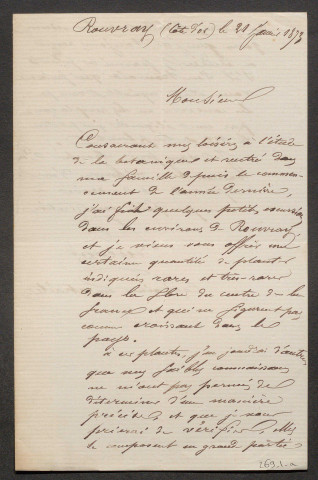 Rouvray (Côte d'or) le 21 Juin 1873
Monsieur
Consacrant mes loisirs à l'étude
de la botanique et rentré dans
ma famille depuis le commen-
cement de l'année dernière,
j'ai fait quelques petites excursions
dans les environs de Rouvray,
et je viens vous offrir une
certaine quantité de plantes
indiquées rares et très-rares
dans la flore du centre de la
france et qui ne figurent pas
comme croissant dans le
pays.
à ces plantes, j'en joindrai d'autres
que mes faibles connaissances
ne m'ont pas permis de
déterminer d'une manière
précise, et que je vous
prierai de vérifier, elles
se composent en grande partie